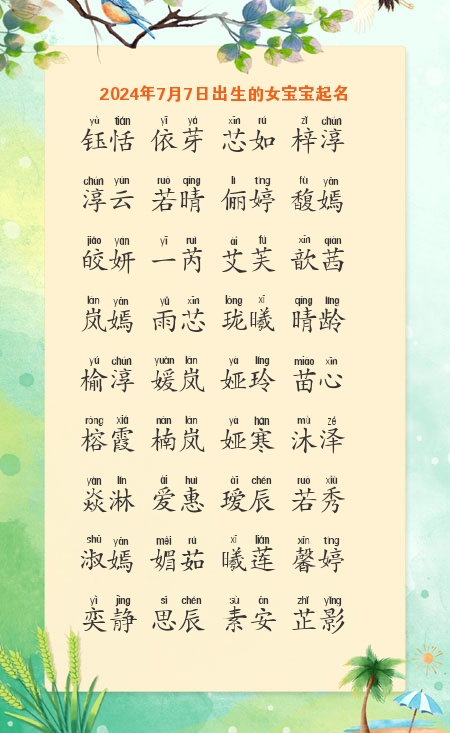 2024年7月7日出生的女宝宝起名
yù tián yī yá xīn rú zǐ chún
钰恬 依芽 芯如 梓淳
chún yún ruò qíng lì tíng fù yān
淳云 若晴 俪婷 馥嫣
jiǎo yán yī ruì ài fú xīn qiàn
皎妍 一芮 艾芙 歆茜
lán yān yǔ xīn lóng xī qíng líng
岚嫣 雨芯 珑曦 晴龄
yú chún yuàn lán yà líng miáo xīn
榆淳 媛岚 娅玲 苗心
róng xiá nán lán yà hán mù zé
榕霞 楠岚 娅寒 沐泽
yàn lín ài huì ài chén ruò xiù
焱淋 爱惠 瑷辰 若秀
shū yān mèi rú xī lián xīn tíng
淑嫣 媚茹 曦莲 馨婷
yì jìng sī chén sù ān zhǐ yǐng
奕静 思辰 素安 芷影